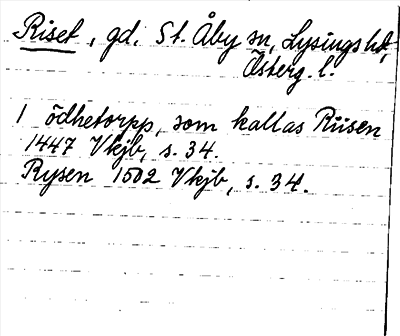 Riset, gd. St. Åby sn, Lysings hd,
Österg. l.
1 ödhetorpp, som kallas Rüsen
1447 Vkjb, s. 34.
Rysen 1502 Vkjb, s. 34.